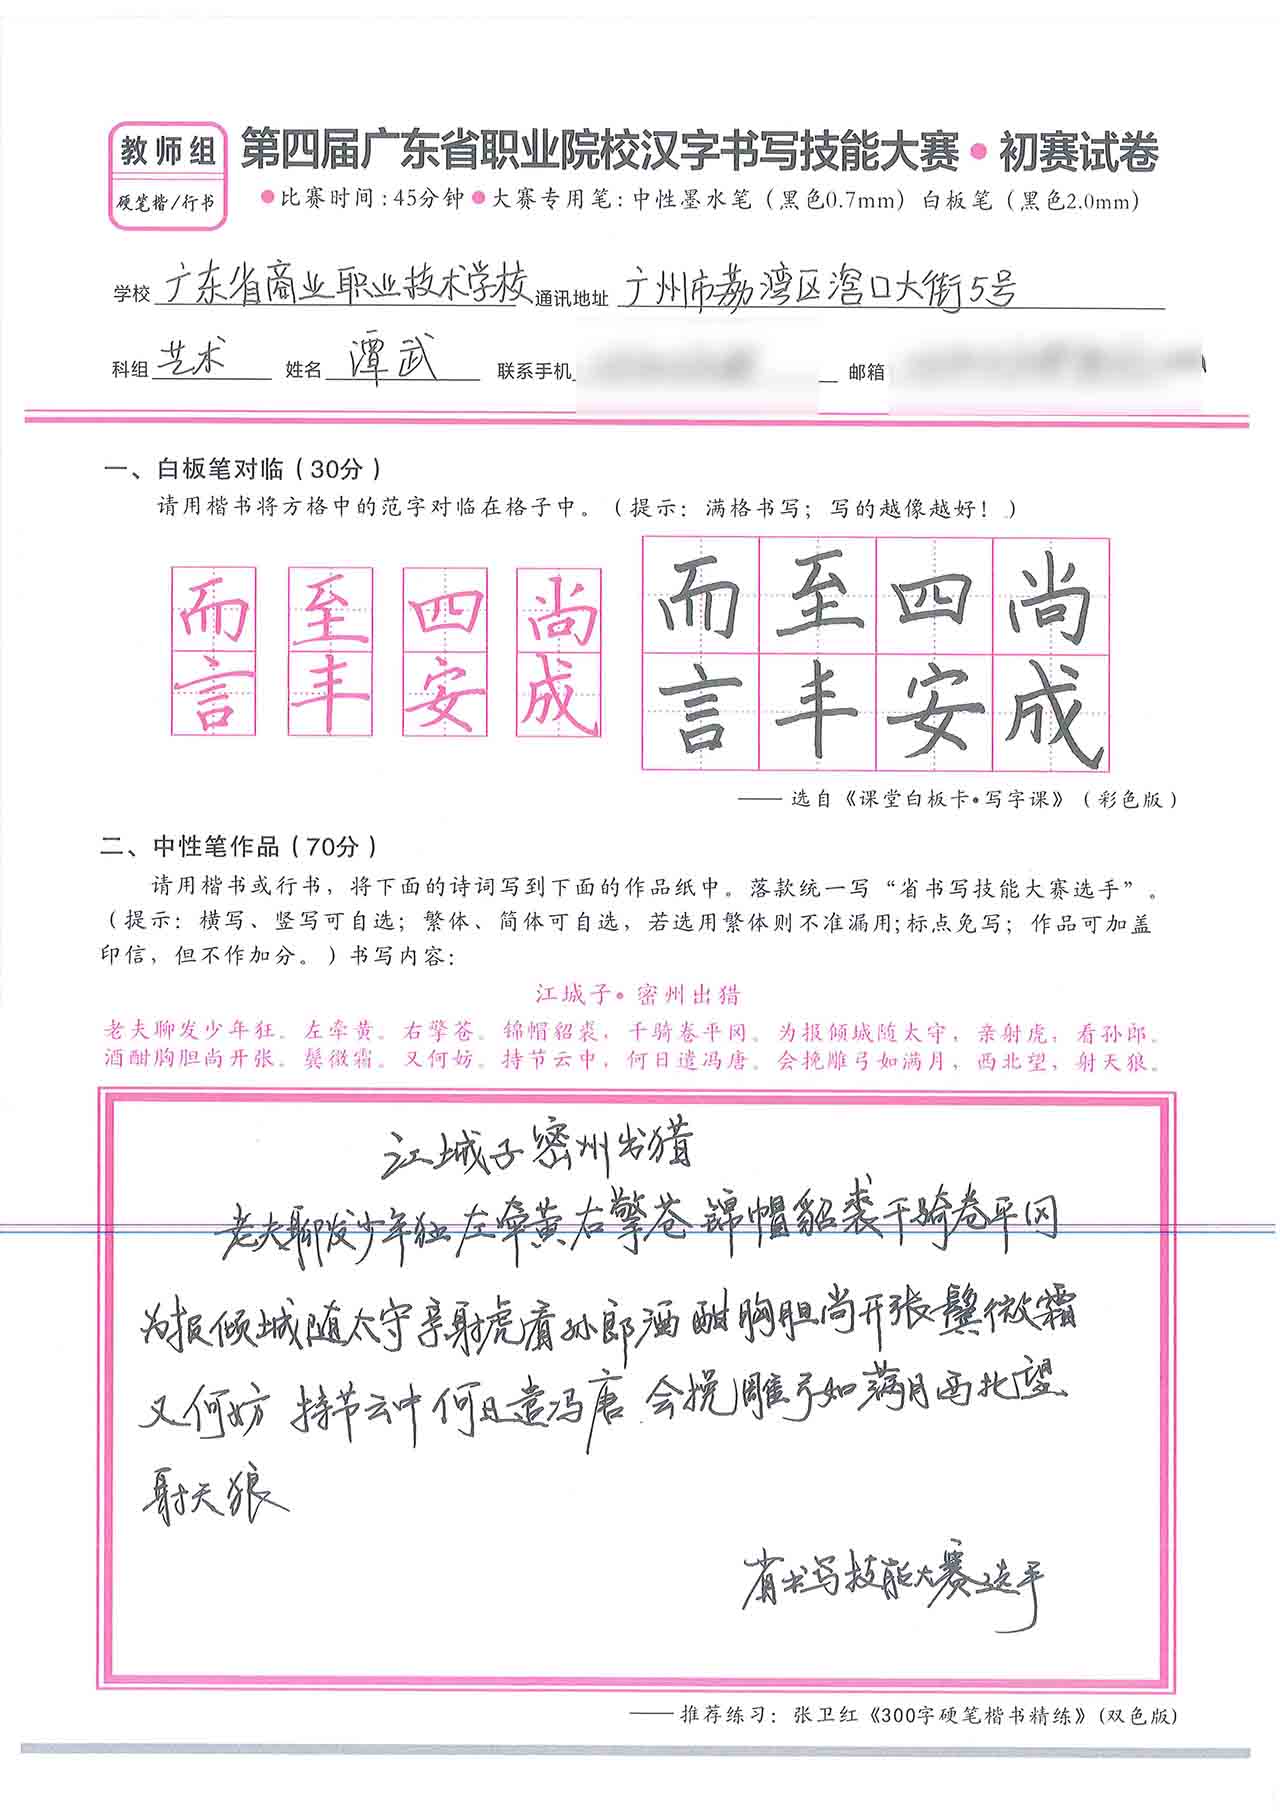 教师组
硬笔楷/行书
第四届广东省职业院校汉字书写技能大赛•初赛试卷
•比赛时间:45分钟•大赛专用笔:中性墨水笔（黑色0.7mm）白板笔（黑色2.0mm）
学校 广东省商业职业技术学校 通讯地址 广州市荔湾区滘口大街5号
科组 艺术 姓名 谭武 联系手机 邮箱
一、白板笔对临（30分）
请用楷书将方格中的范字对临在格子中。（提示：满格书写；写的越像越好！）
而 至 四 尚 而 至 四 尚
言 丰 安 成 言 丰 安 成
—— 选自《课堂白板卡•写字课》（彩色版）
二、中性笔作品（70分）
请用楷书或行书，将下面的诗词写到下面的作品纸中。落款统一写“省书写技能大赛选手”。
（提示：横写、竖写可自选；繁体、简体可自选，若选用繁体则不准漏用;标点免写；作品可加盖
印信，但不作加分。）书写内容：
江城子•密州出猎
老夫聊发少年狂。左牵黄。右擎苍。锦帽貂裘，千骑卷平冈。为报倾城随太守，亲射虎，看孙郎。
酒酣胸胆尚开张。鬓微霜。又何妨。持节云中，何日遣冯唐。会挽雕弓如满月，西北望，射天狼。
江城子密州出猎
老夫聊发少年狂左牵黄右擎苍锦帽貂裘千骑卷平冈
为报倾城随太守亲射虎看孙郎酒酣胸胆尚开张鬓微霜
又何妨持节云中何日遣冯唐会挽雕弓如满月西北望
射天狼
省书写技能大赛选手
—— 推荐练习：张卫红《300字硬笔楷书精练》(双色版)